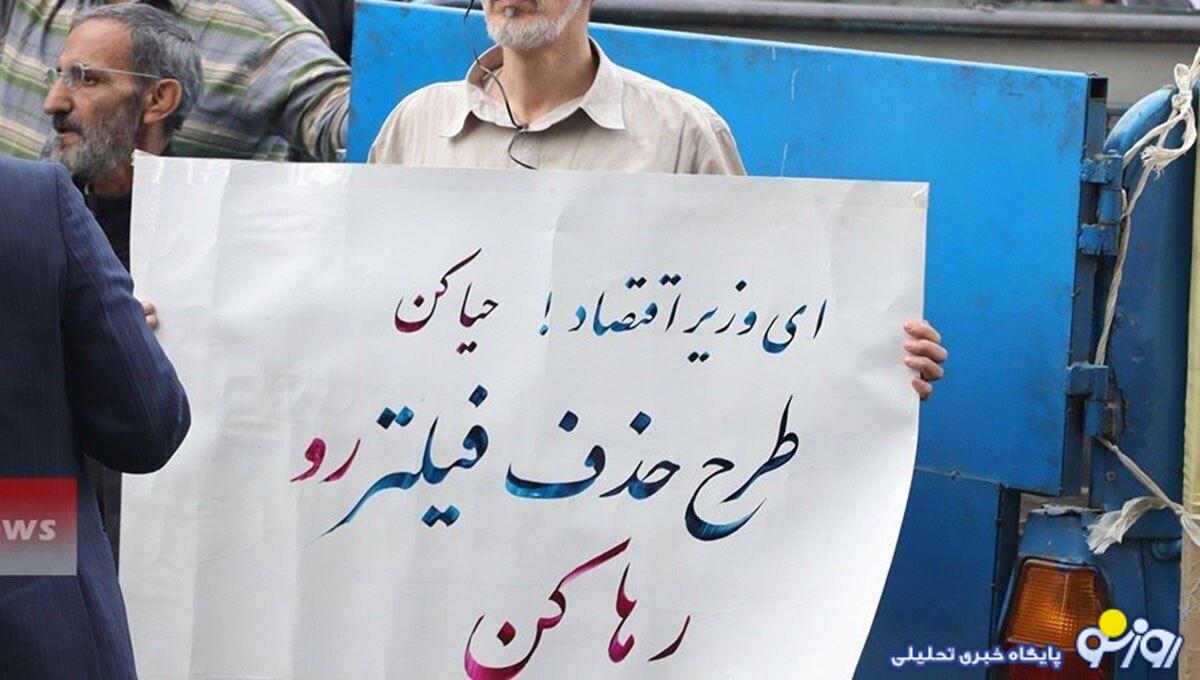 ای وزیر اقتصاد! حیا کن
طرح حذف فیلتر رو
رها کن
روزنو
پایگاه خبری تحلیلی